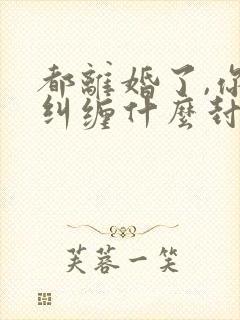 都離婚了,你
纠缠什麼封
芙蓉一笑